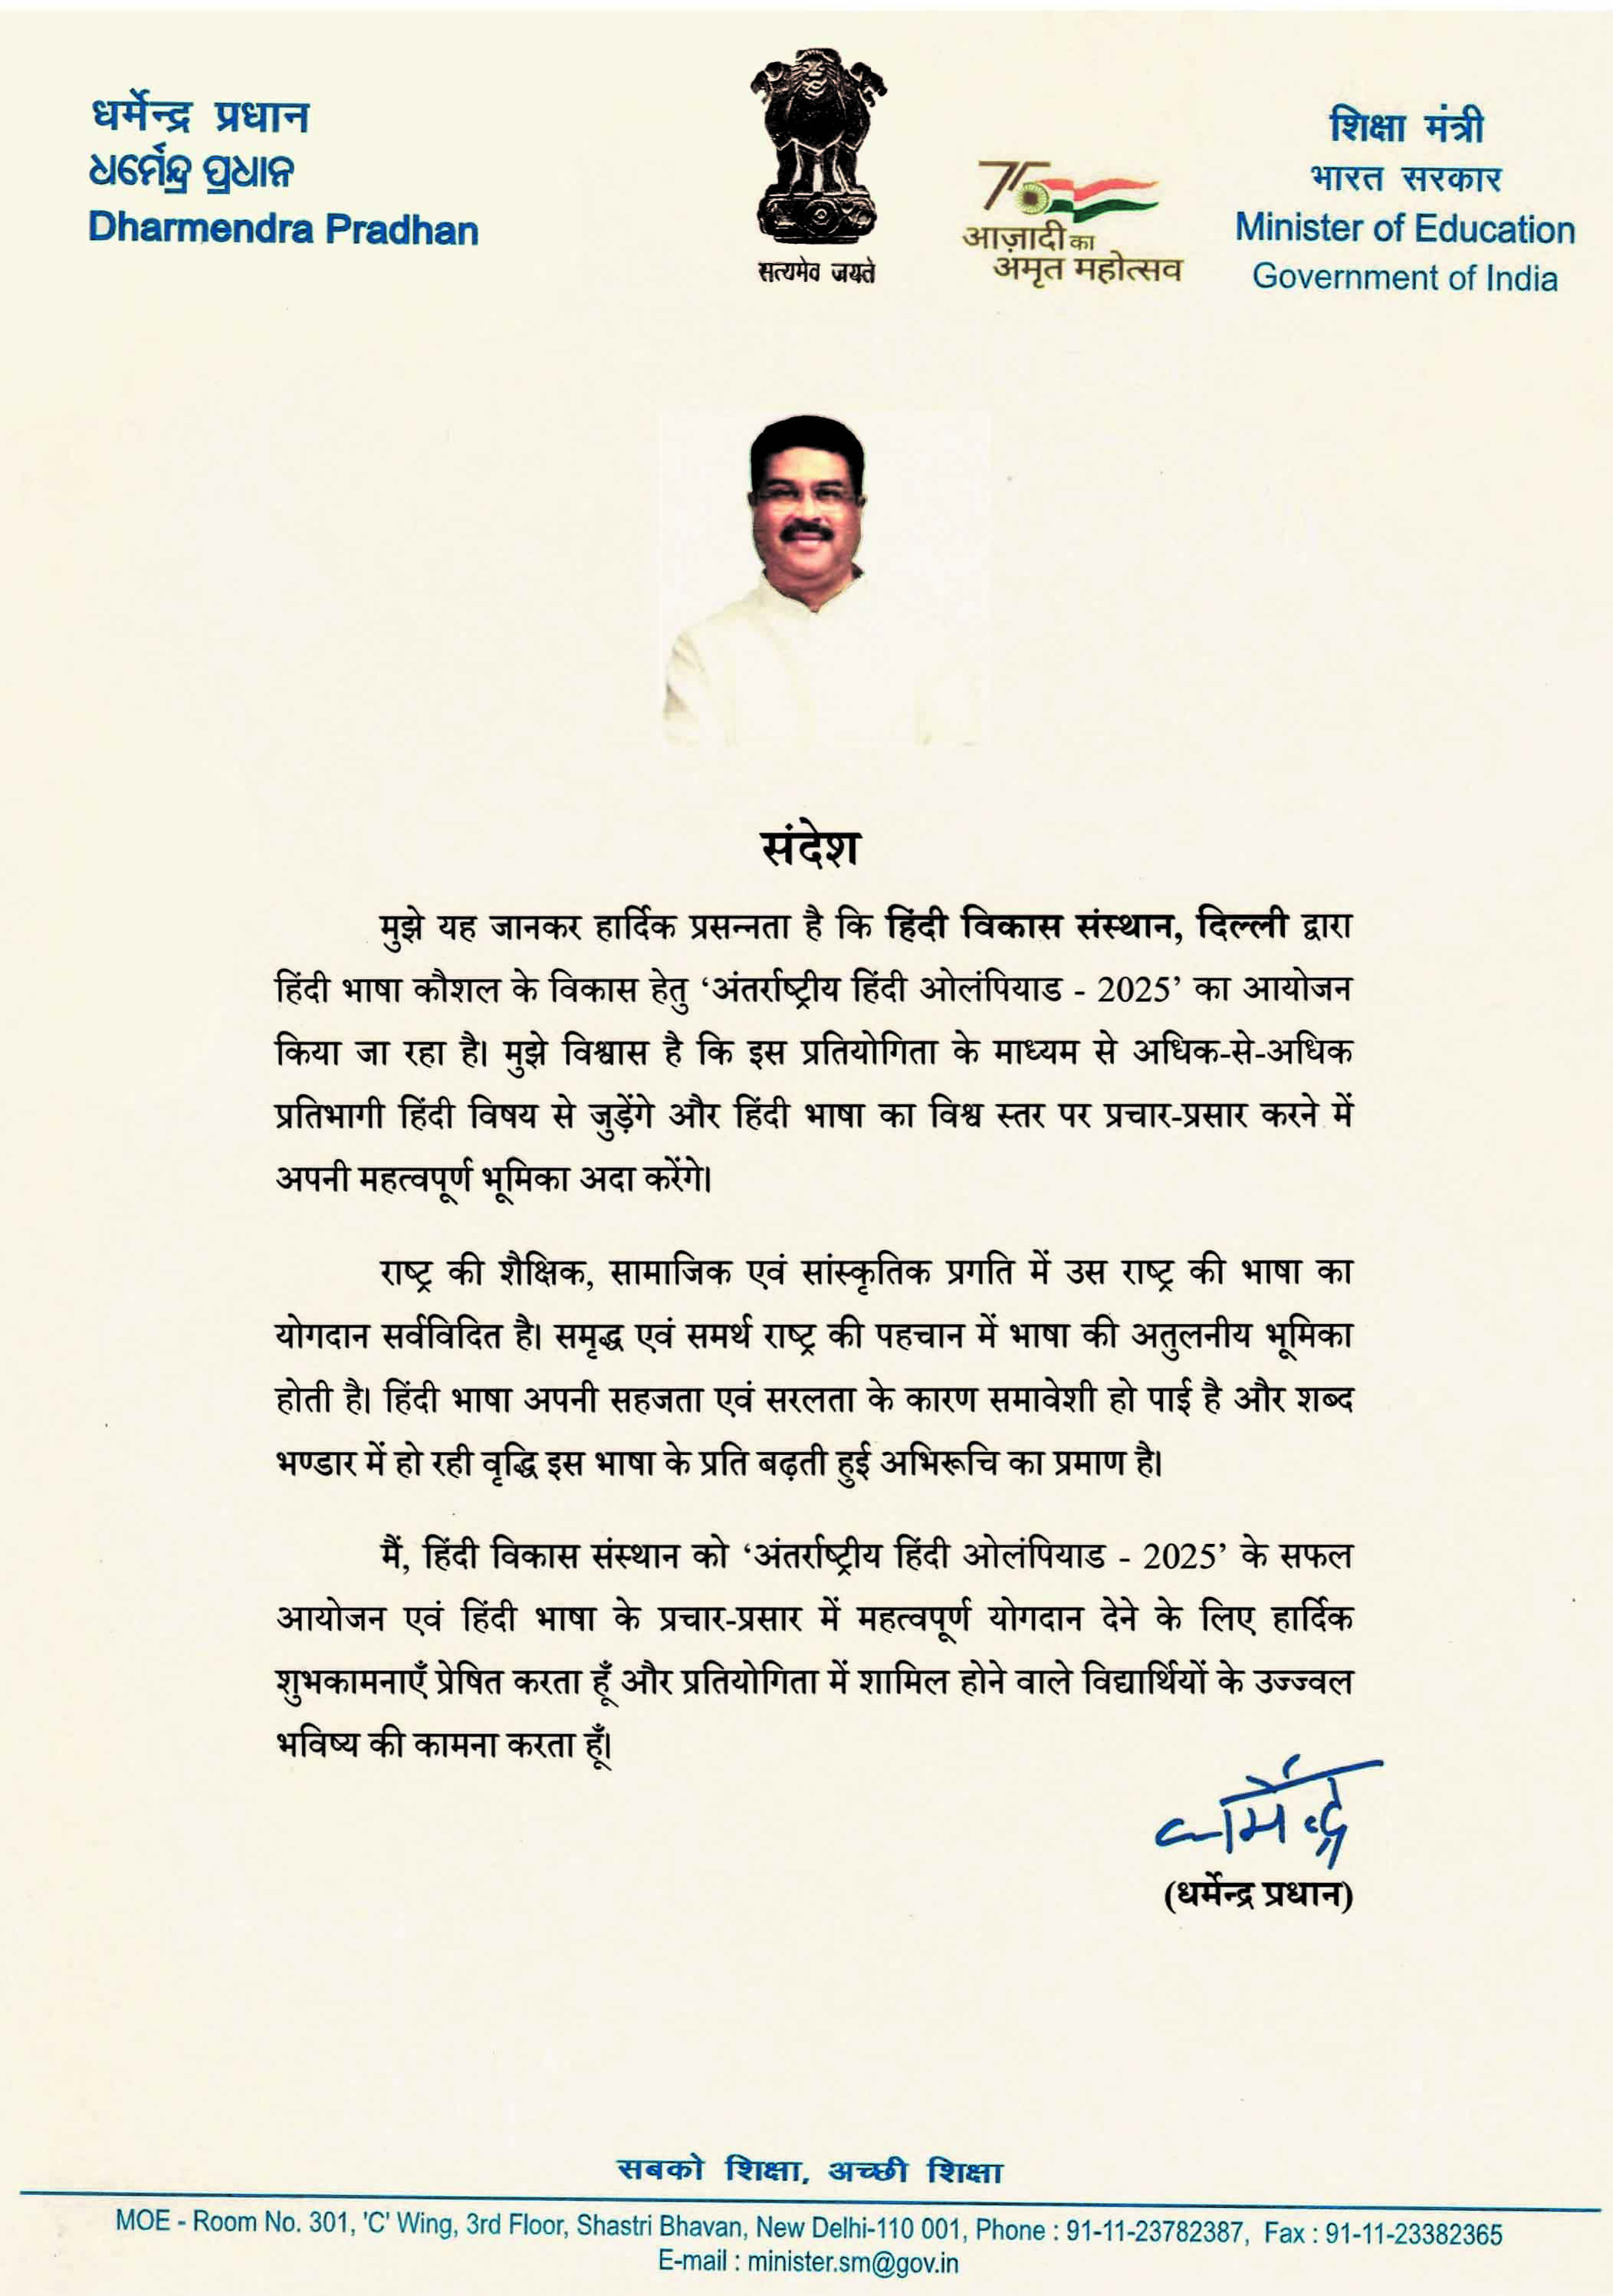 धर्मेन्द्र प्रधान
ଧର୍ମେନ୍ଦ୍ର ପ୍ରଧାନ
Dharmendra Pradhan
सत्यमेव जयते
75
आज़ादी का
अमृत महोत्सव
शिक्षा मंत्री
भारत सरकार
Minister of Education
Government of India
संदेश
मुझे यह जानकर हार्दिक प्रसन्नता है कि हिंदी विकास संस्थान, दिल्ली द्वारा
हिंदी भाषा कौशल के विकास हेतु ‘अंतर्राष्ट्रीय हिंदी ओलंपियाड - 2025’ का आयोजन
किया जा रहा है। मुझे विश्वास है कि इस प्रतियोगिता के माध्यम से अधिक-से-अधिक
प्रतिभागी हिंदी विषय से जुड़ेंगे और हिंदी भाषा का विश्व स्तर पर प्रचार-प्रसार करने में
अपनी महत्वपूर्ण भूमिका अदा करेंगे।
राष्ट्र की शैक्षिक, सामाजिक एवं सांस्कृतिक प्रगति में उस राष्ट्र की भाषा का
योगदान सर्वविदित है। समृद्ध एवं समर्थ राष्ट्र की पहचान में भाषा की अतुलनीय भूमिका
होती है। हिंदी भाषा अपनी सहजता एवं सरलता के कारण समावेशी हो पाई है और शब्द
भण्डार में हो रही वृद्धि इस भाषा के प्रति बढ़ती हुई अभिरूचि का प्रमाण है।
मैं, हिंदी विकास संस्थान को ‘अंतर्राष्ट्रीय हिंदी ओलंपियाड - 2025’ के सफल
आयोजन एवं हिंदी भाषा के प्रचार-प्रसार में महत्वपूर्ण योगदान देने के लिए हार्दिक
शुभकामनाएँ प्रेषित करता हूँ और प्रतियोगिता में शामिल होने वाले विद्यार्थियों के उज्ज्वल
भविष्य की कामना करता हूँ।
धर्मेन्द्र
(धर्मेन्द्र प्रधान)
सबको शिक्षा, अच्छी शिक्षा
MOE - Room No. 301, 'C' Wing, 3rd Floor, Shastri Bhavan, New Delhi-110 001, Phone : 91-11-23782387, Fax : 91-11-23382365
E-mail : minister.sm@gov.in